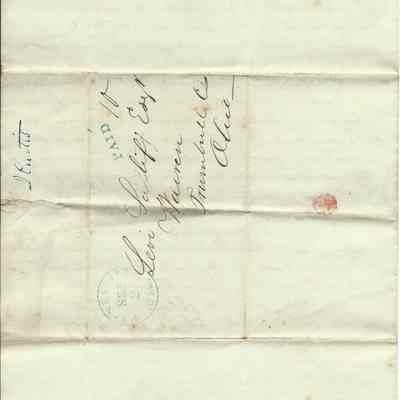 PAID 10
Levi Sutliff Esqr
Warren
Trumbull Co
Ohio